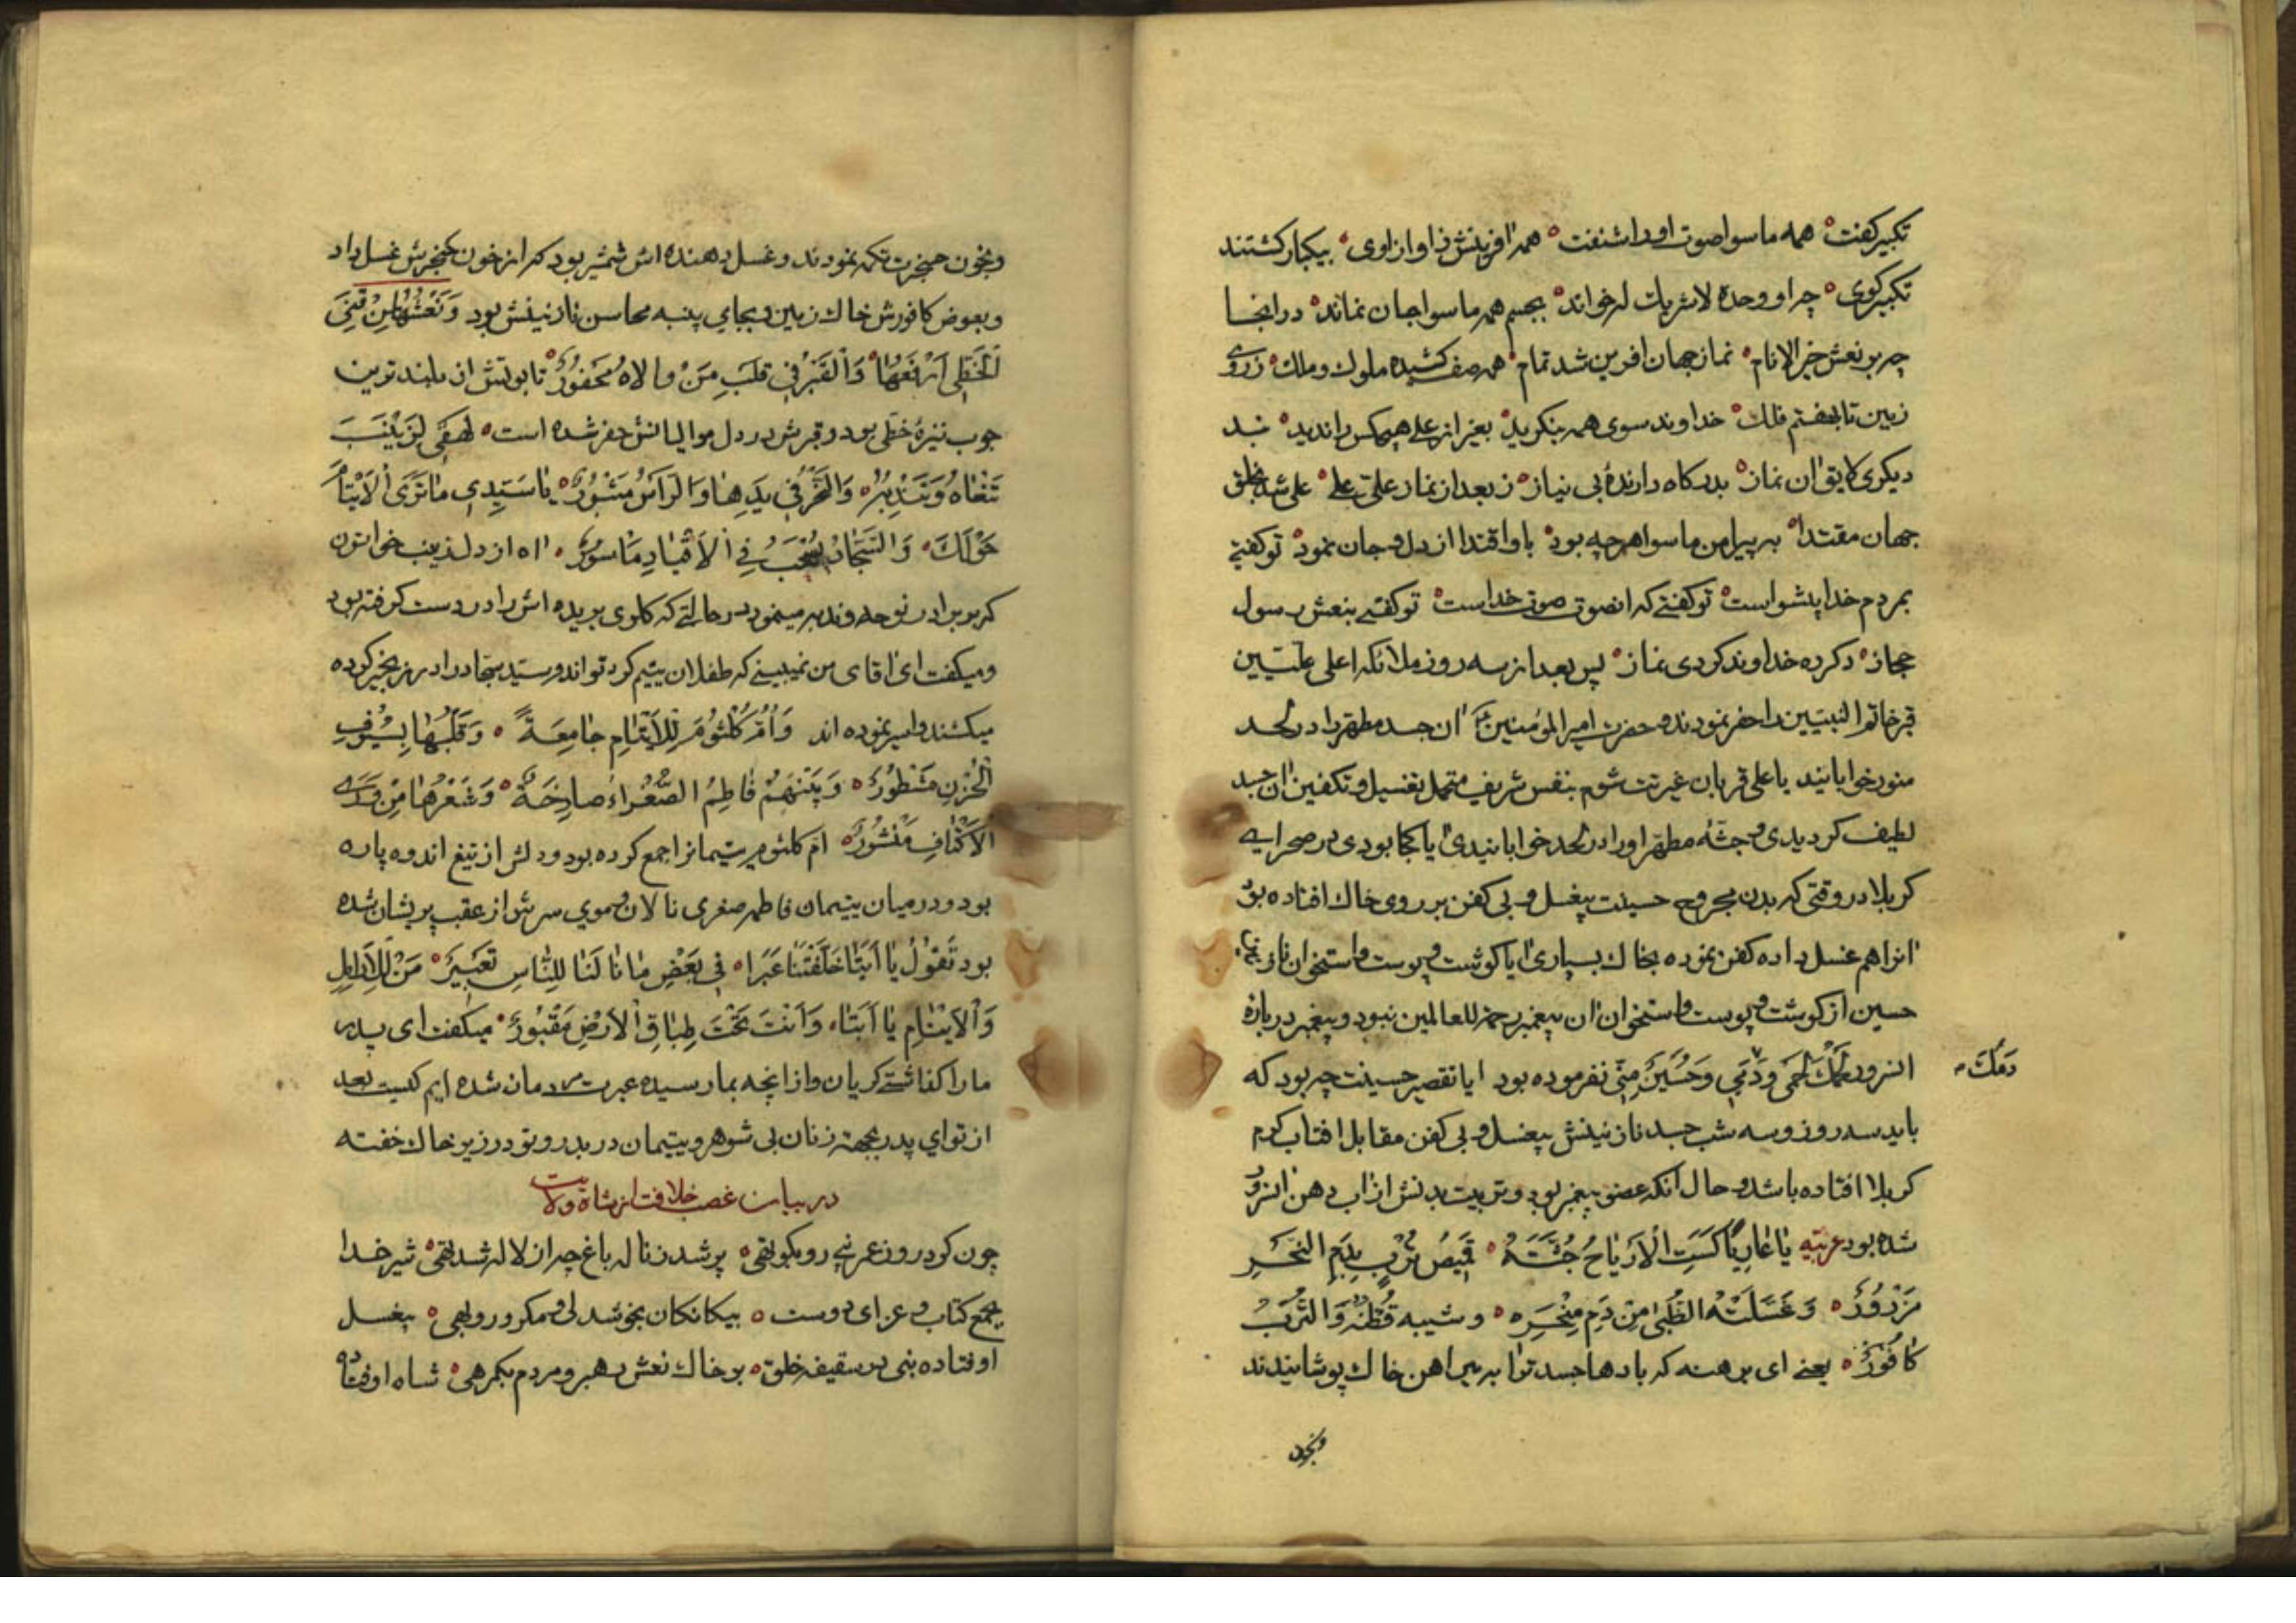 تکبیر کفت همه ماسوا صوت او را شنفت همه افرینش ز اواز اوی بیکبار کشتند
تکبیرکوی چو او وحده لاشریك له خواند بجسم همه ماسوا جان نماند در انجا
چو بر نعش خیر الانام نماز جهان افرین شد تمام همه صف کشیده ملوك و ملك ز روی
زمین تا بهفتم فلك خداوند سوی همه بنکرید بغیر از علی هیچکس را ندید نبد
دیکری لایق ان نماز بدرکاه دارندۀ بی نیاز ز بعد از نماز علیّ علی علی شد بخلق
جهان مقتدا به پیرامن ماسوا هرچه بود باو اقتدا از دل و جان نمود تو کفتی
بمردم خدا پیشوا است تو کفتی که انصوت صوت خداست تو کفتی بنعش رسول
حجاز دکرده خداوند کردی نماز پس بعد از سه روز ملائکه اعلی علیّین
قبر خاتم النبیّین را حفر نمودند و حضرت امیر المؤمنین ان جسد مطهر را در لحد
منور خوابانید یا علی قربان غیرتت شوم بنفس شریف متحمل تغسیل و تکفین ان جسد
لطیف کردیدی و جثۀ مطهر او را در لحد خوابانیدی ایا کجا بودی در صحرای
کربلا در وقتی که بدن مجروح حسینت بیغسل و بی کفن بر روی خاك افتاده بود
انرا هم غسل داده کفن نموده بخاك بسپاری ایا کوشت و پوست و استخوان نازنین
حسین از کوشت و پوست و استخوان ان پیغمبر رحمة للعالمین نبود و پیغمبر در بارۀ
انسرور لَحْمُكَ لَحْمی وَدَمی وَحُسَیْنٌ مِنّی نفرموده بود ایا تقصیر حسینت چه بود که
دَمُكَ
باید سه روز و سه شب جسد نازنینش بیغسل و بی کفن مقابل افتاب کرم
کربلا افتاده باشد و حال آنکه عضو پیغمبر بود و تربیت بدنش از اب دهن انسرور
شده بود عربیّه یا عارِیاً کَسَتِ الْاَرْیاحُ جُثَّتَهُ قَمیصُ تُرْبٍ بِدَمِ النَّحْرِ
مَزْرُورٌ وَغَسَّلَتْهُ الظُّبیٰ مِنْ دَمِ مِنْحَرِه وشیبه قُطْنُهُ وَالتُّرْبُ
کافُورٌ یعنی ای برهنه که بادها جسد تو را به پیراهن خاك پوشانیدند
وبخون
وبخون حنجرت تکمه نمودند و غسل دهنده اش شمشیر بود که از خون حنجرش غسل داد
وبعوض کافورش خاك زمین و بجای پنبه محاسن نازنینش بود وَنَعْشُها مِنْ قَنَی
الْخَطِّی اَرْفَعُها وَالْقَبْرُ فی قَلْبِ مَنْ والاهُ مَحْفُورٌ تابوتش از بلندترین
چوب نیزۀ خطّی بود و قبرش در دل موالیانش حفر شده است لَهْفی لِزَیْنَبَ
تَنْعاهُ وَتَنْدُبُهُ وَالنَّحْرُ فی یَدِها وَالرَّاْسُ مَشْهُورٌ یا سَیّدی ما تَرَی الْاَیْتامَ
حَوْلَكَ وَالسَّجّادُ یُسْحَبُ فِی الْاَقْیادِ مَاْسُورٌ اه از دل زینب خواتون
که بر برادر نوحه و ندبه مینمود در حالتی که کلوی بریده اش را در دست کرفته بود
ومیکفت ای اقای من نمیبینی که طفلان یتیم کرد تو اند و سیّد سجّاد را در زنجیر کرده
میکشند و اسیر نموده اند وَاُمُّ کُلْثُومَ لِلْاَیْتامِ جامِعَةٌ وَقَلْبُها بِسُیُوفِ
الْحُزْنِ مَشْطُورٌ وَبَیْنَهُمْ فاطِمُ الصُّغْراءُ صارِخَةٌ وَشَعْرُها مِنْ وَراءِ
الاَکْتافِ مَنْشُورٌ امّ کلثوم یتیمانرا جمع کرده بود و دلش از تیغ اندوه پاره
بود و در میان یتیمان فاطمه صغری نالان و موی سرش از عقب پریشان شده
بود تَقُولُ یا اَبَتا خَلَّفْتَنا عَبَرا فی بَعْضِ ما نالَنا لِلنّاسِ تَعْبیرٌ مَنْ لِلْاَرامِلِ
وَالْاَیْتامِ یا اَبَتا وَاَنْتَ تَحْتَ طِباقِ الْاَرْضِ مَقْبُورٌ میکفت ای پدر
ما را کذاشتی کریان و از انچه بما رسیده عبرت مردمان شده ایم کیست بعد
از تو ای پدر بجهة زنان بی شوهر و یتیمان دربدر و تو در زیر خاك خفته
در بیان غصب خلافت از شاه ولایت
چون کرد روز عرنیه رو بکوتهی پر شد ز ناله باغ چه از لاله شد تهی شیر خدا
بجمع کتاب و عزای دوست بیکانکان بخوشدلی و مکر و روبهی بیغسل
اوفتاده نبی در سقیفه خلق بر خاك نعش رهبر و مردم بکمرهی شاه اوفتاده